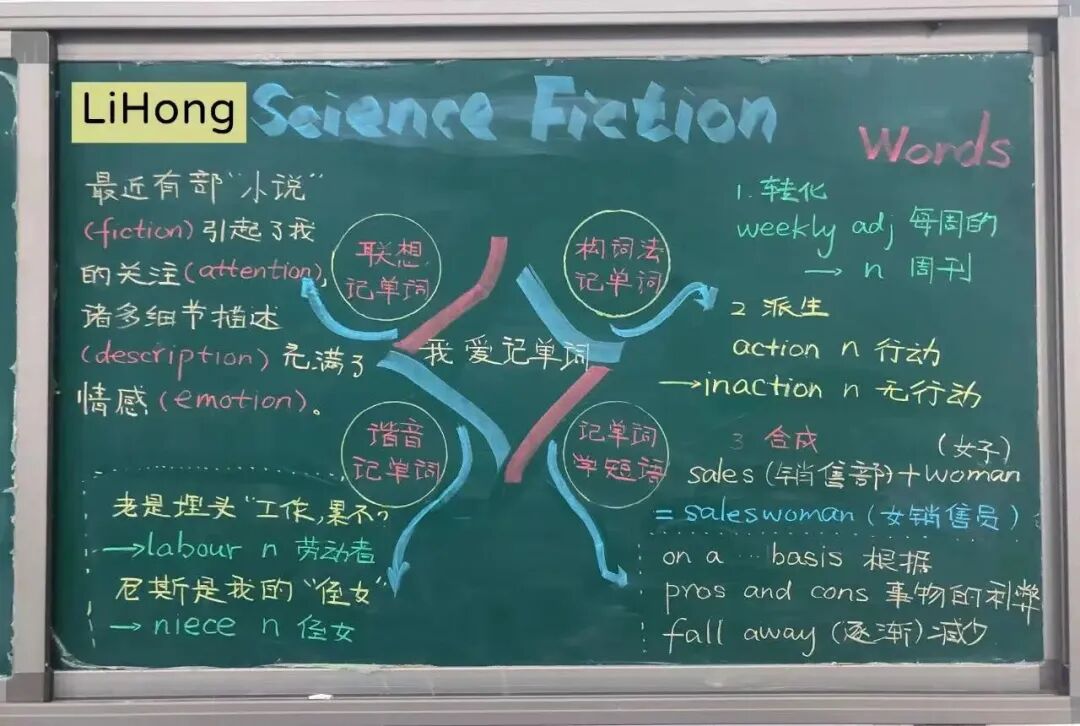 LiHong
Science Fiction
Words
最近有部“小说”
(fiction)引起了我
的关注(attention),
诸多细节描述
(description)充满了
情感(emotion)。
联想
记单词
构词法
记单词
我爱记单词
谐音
记单词
记单词
学短语
1.转化
weekly adj 每周的
→ n 周刊
2 派生
action n 行动
→inaction n 无行动
3 合成
(女子)
sales(销售部)+woman
=saleswoman(女销售员)
老是埋头“工作,累不?
→labour n 劳动者
尼斯是我的“侄女”
→ niece n 侄女
on a … basis 根据
pros and cons 事物的利弊
fall away (逐渐)减少